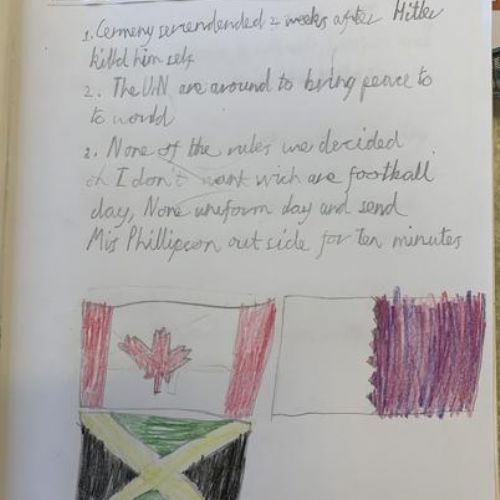 1. Cermeny serendended 2 weeks after Hitler
killd him self
2. The U.N are around to bring peace to
to world
2. None of the rules we decided
oh I don't want wich are football
day, None uniform day and send
Mis Phillipson out side for ten minutes